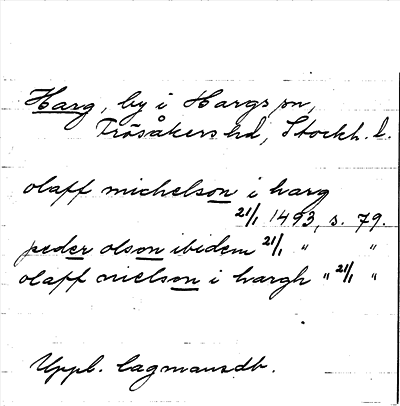 Harg, by i Hargs sn,
Frösåkers hd, Stockh. l.
olaff michelson i harg
21/1 1493, s. 79.
peder olson ibidem 21/1 " "
olaff nielson i hargh " 21/1 "
Uppl. lagmansdb.